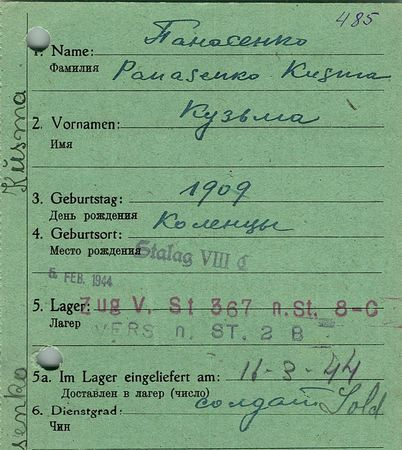 485
Панасенко
1. Name:
Фамилия
Panasenko Kusma
2. Vornamen: Кузьма
Имя
3. Geburtstag: 1909
День рождения
4. Geburtsort: Коленцы
Место рождения
Stalag VIII C
6. FEB. 1944
5. Lager: Zug V. St 367 n. St. 8-C
Лагер
VERS n. ST. 2 B
5a. Im Lager eingeliefert am: 11-3-44
Доставлен в лагер (число)
6. Dienstgrad: солдат Sold
Чин
Küsma
senko